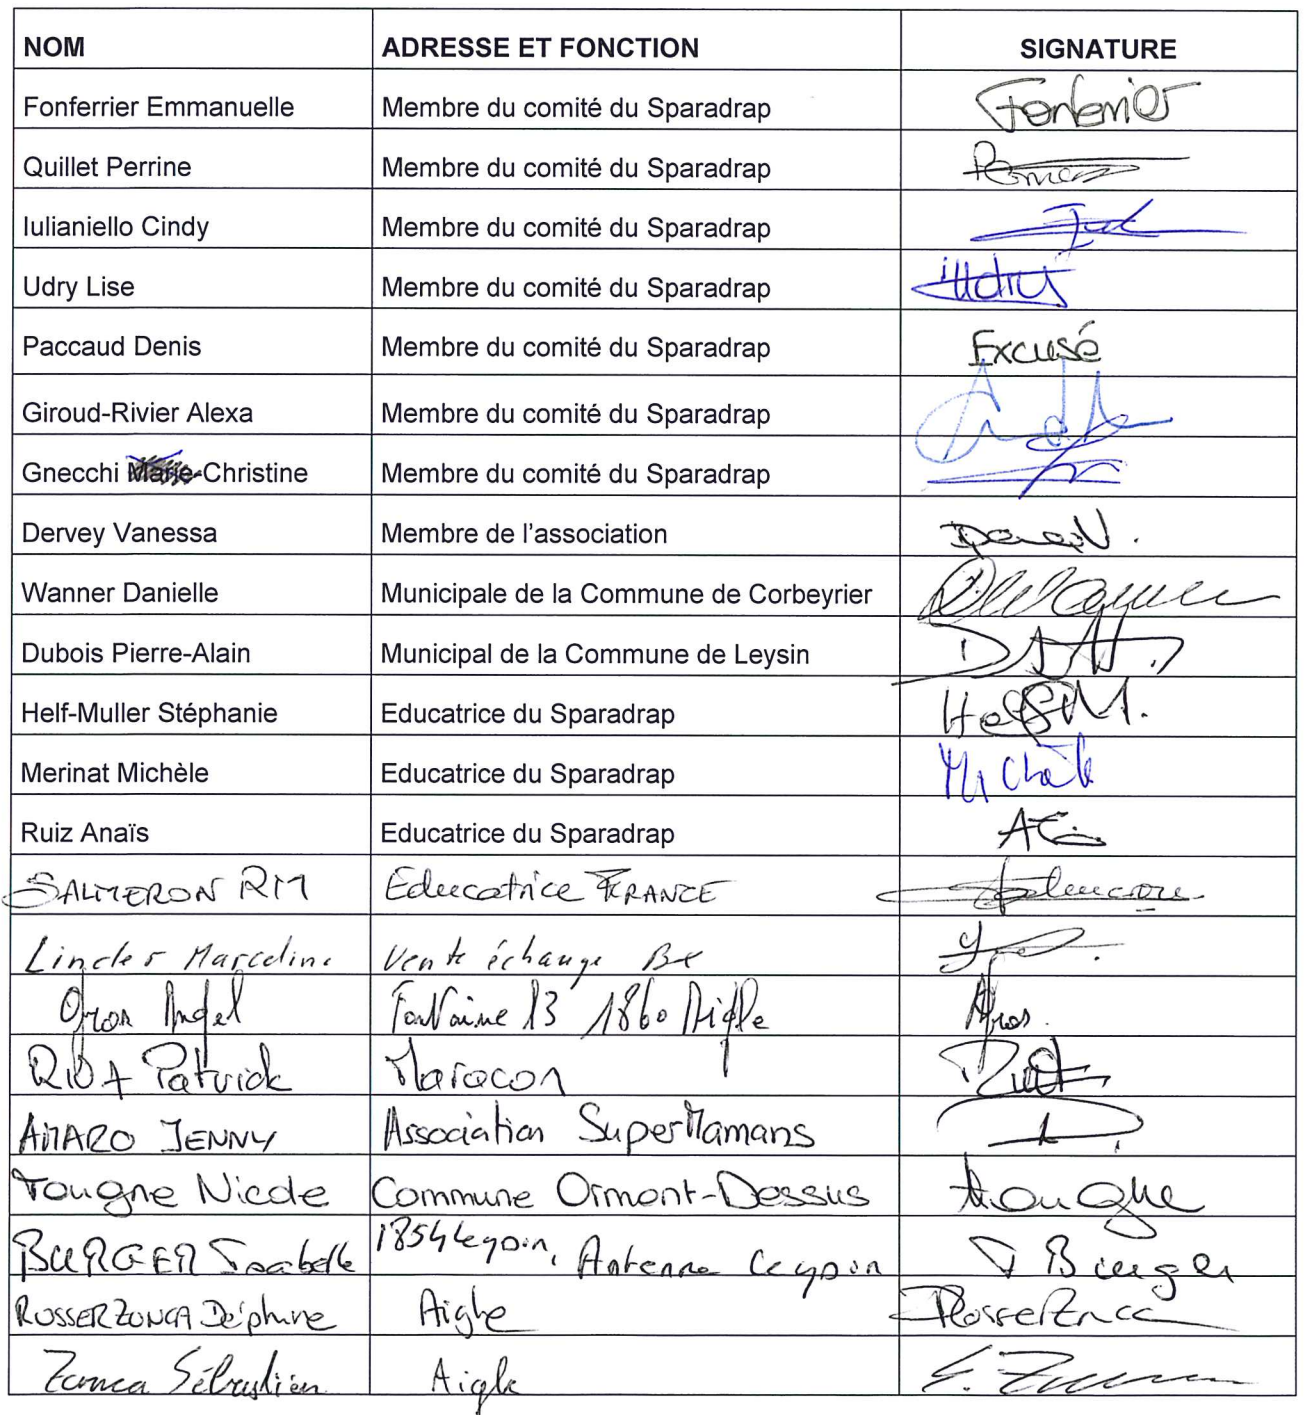 NOM ADRESSE ET FONCTION SIGNATURE
Fonferrier Emmanuelle Membre du comité du Sparadrap Fonferrier
Quillet Perrine Membre du comité du Sparadrap
Iulianiello Cindy Membre du comité du Sparadrap
Udry Lise Membre du comité du Sparadrap Udry
Paccaud Denis Membre du comité du Sparadrap Excusé
Giroud-Rivier Alexa Membre du comité du Sparadrap
Gnecchi Marie-Christine Membre du comité du Sparadrap
Dervey Vanessa Membre de l'association
Wanner Danielle Municipale de la Commune de Corbeyrier
Dubois Pierre-Alain Municipal de la Commune de Leysin
Helf-Muller Stéphanie Educatrice du Sparadrap
Merinat Michèle Educatrice du Sparadrap
Ruiz Anaïs Educatrice du Sparadrap
SALMERON RM Educatrice FRANCE
Linder Marceline Vente échange Bex
Angel Fontaine 13 1860 Aigle
Patrick Maracon
AMARO JENNY Association SuperMamans
Tougne Nicole Commune Ormont-Dessus Tougne
BURGER Isabelle 1854 Leysin, Antenne Leysin I Burger
ROSSER ZONCA Delphine Aigle RosserZonca
Zonca Sébastien Aigle S. Zonca